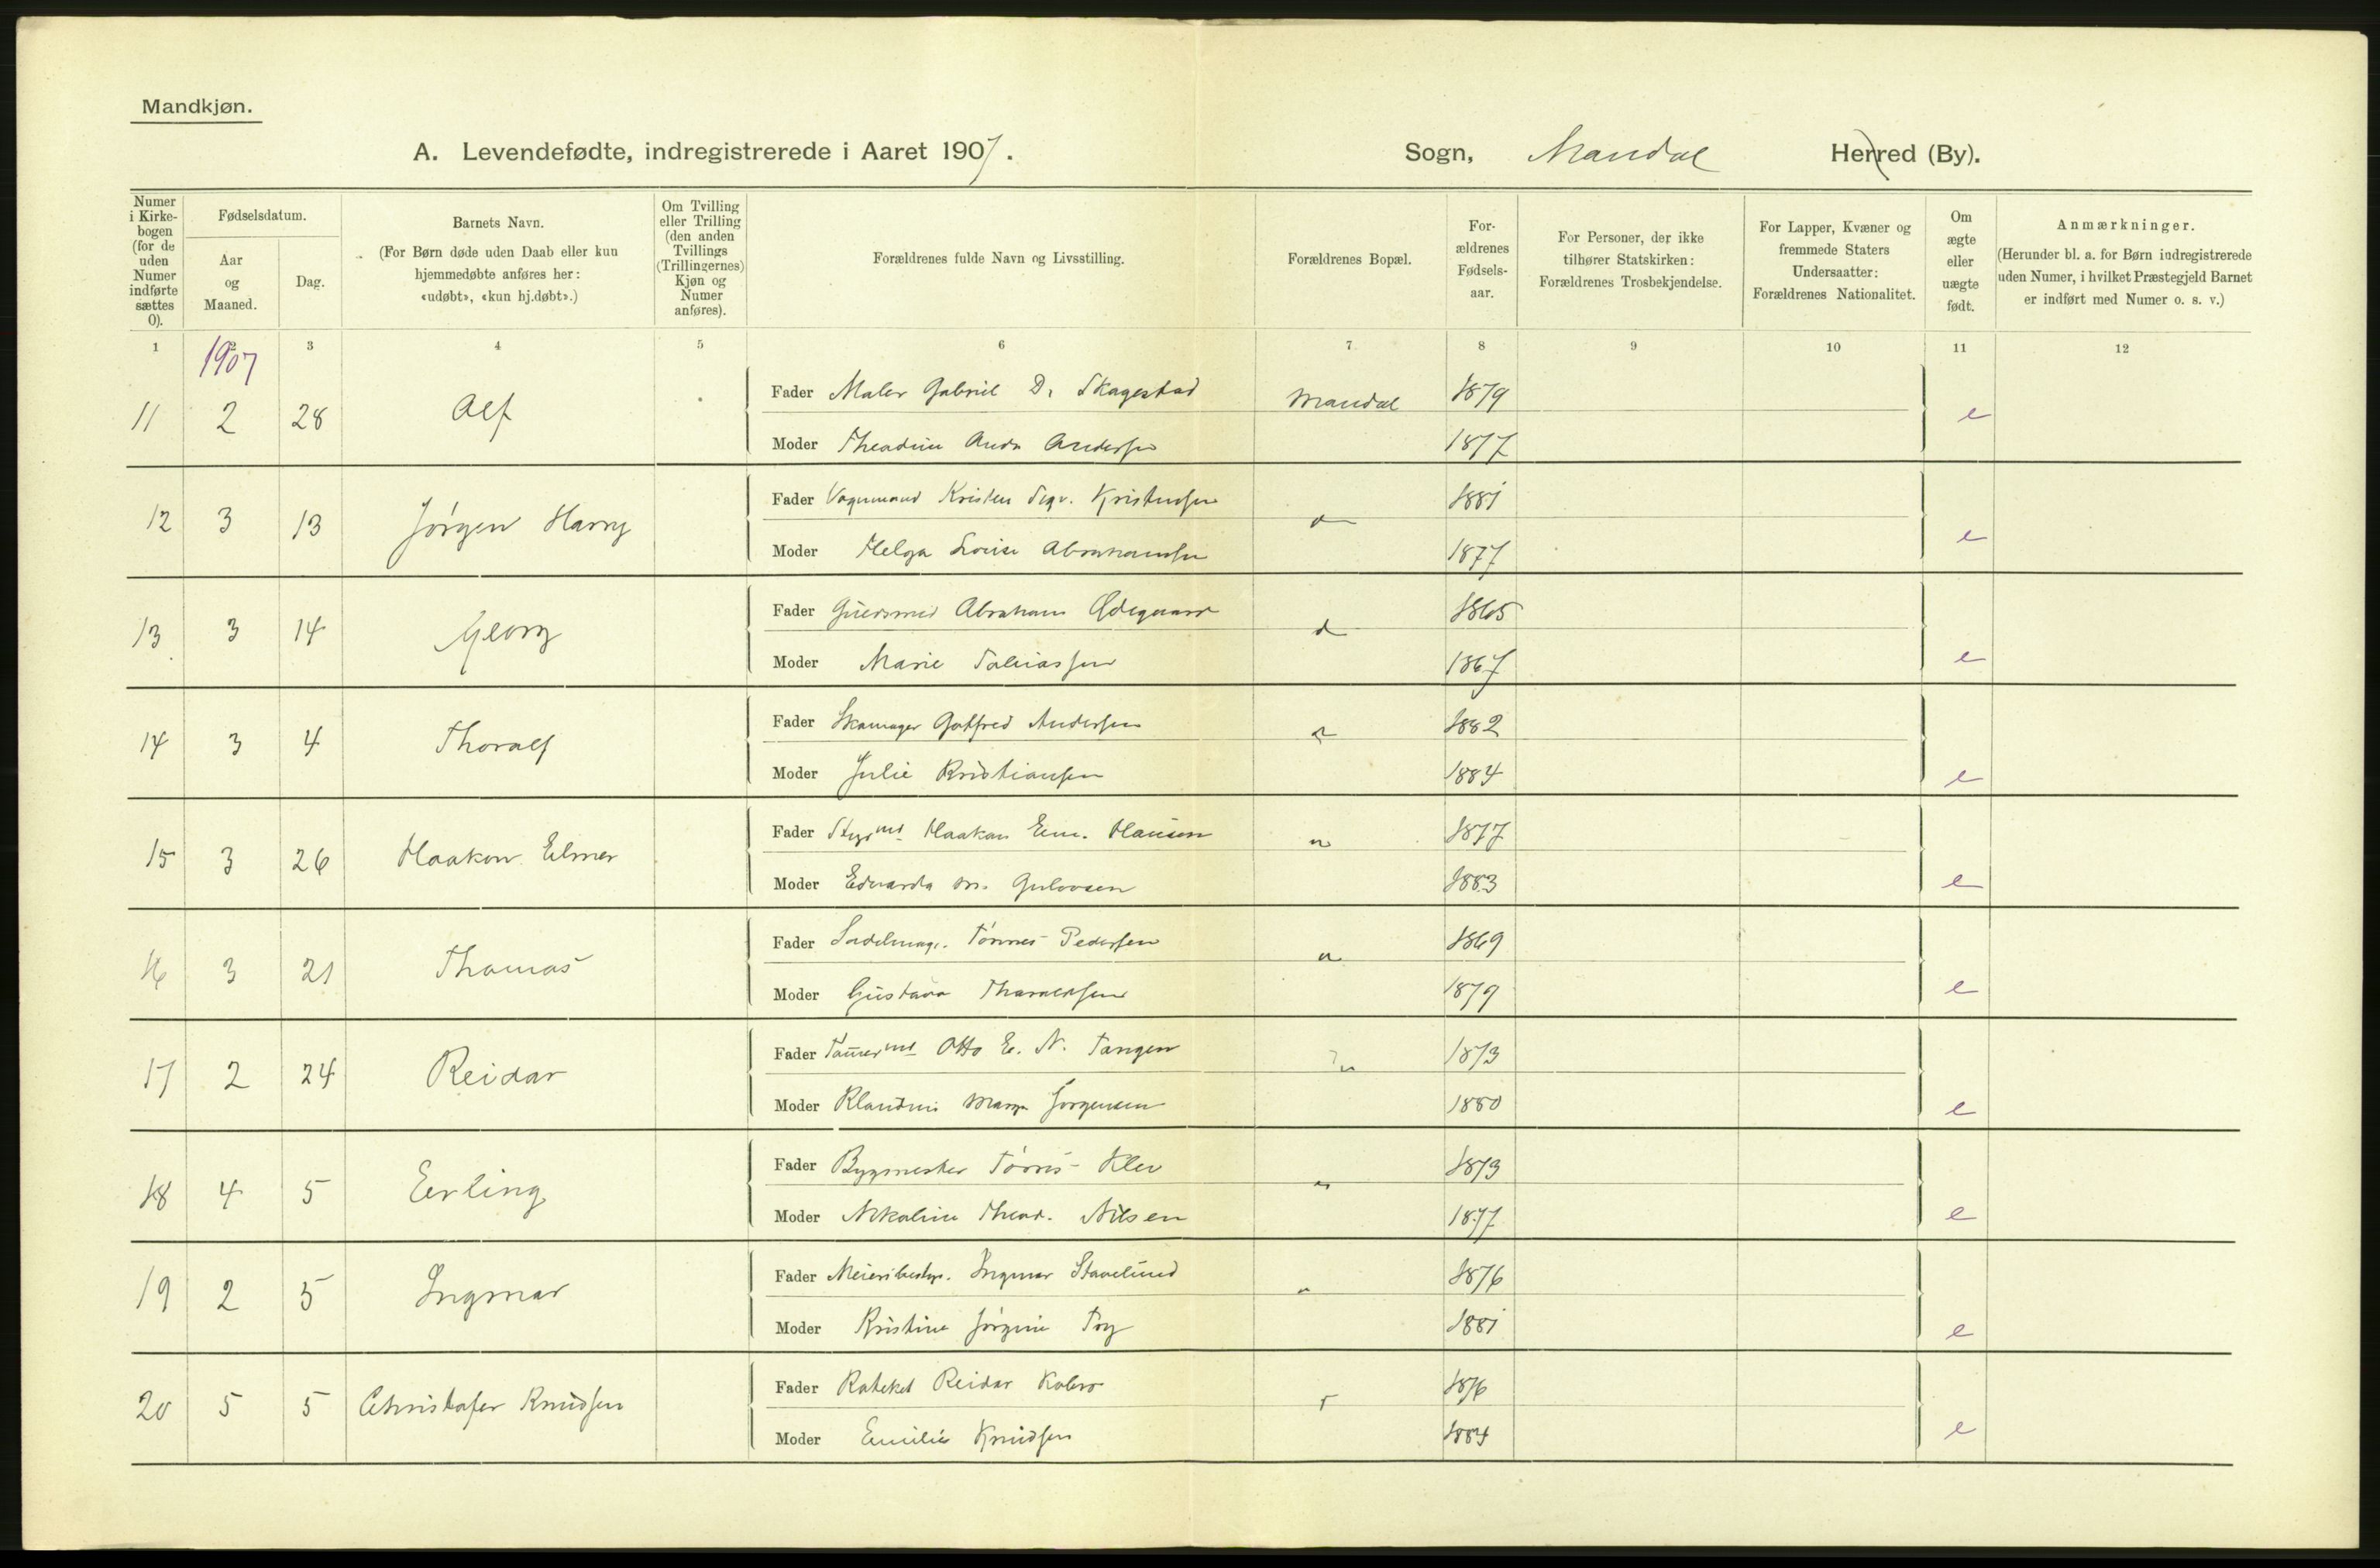 Mandkjøn.
A. Levendefødte, indregistrerede i Aaret 1907.
Sogn, Mandal Herred (By).
Numer i Kirkebogen (for de uden Numer indførte sættes 0).
Fødselsdatum.
Aar og Maaned.
Dag.
Barnets Navn.
(For Børn døde uden Daab eller kun hjemmedøbte anføres her: «udøbt», «kun hj.døbt».)
Om Tvilling eller Trilling (den anden Tvillings (Trillingernes) Kjøn og Numer anføres).
Forældrenes fulde Navn og Livsstilling.
Forældrenes Bopæl.
Forældrenes Fødselsaar.
For Personer, der ikke tilhører Statskirken: Forældrenes Trosbekjendelse.
For Lapper, Kvæner og fremmede Staters Undersaatter: Forældrenes Nationalitet.
Om ægte eller uægte født.
Anmærkninger.
(Herunder bl. a. for Børn indregistrerede uden Numer, i hvilket Præstegjeld Barnet er indført med Numer o. s. v.)
1 2 3 4 5 6 7 8 9 10 11 12
1907
11 2 28 Alf Fader Maler Gabriel D. Skagestad Mandal 1879 e
Moder Theadine Andersen 1877
12 3 13 Jørgen Harry Fader Vognmand Kristen Sigv. Kristensen 1881 e
Moder Helga Louise Abrahamsen 1877
13 3 14 Georg Fader Guldsmed Abraham Ødegaard 1865 e
Moder Marie Tobiassen 1867
14 3 4 Thoralf Fader Skomager Gotfred Andersen 1882 e
Moder Julie Kristiansen 1884
15 3 26 Haakon Elmer Fader Haakon Em. Hansen 1877 e
Moder Edvarda M. Gulovsen 1883
16 3 21 Thomas Fader Sadelmag. Tønnes Pedersen 1869 e
Moder Gustava 1879
17 2 24 Reidar Fader Otto E. N. Tangen 1873 e
Moder Klaudine Jørgensen 1880
18 4 5 Erling Fader Bygmester Tørres Klev 1873 e
Moder Nikoline Thead. Nilsen 1877
19 2 5 Ingmar Fader Meieribestyr. Ingmar 1876 e
Moder Kristine Jørgine Foy 1881
20 5 5 Christofer Knudsen Fader Kateket Reidar Kobro 1876 e
Moder Emilie Knudsen 1884